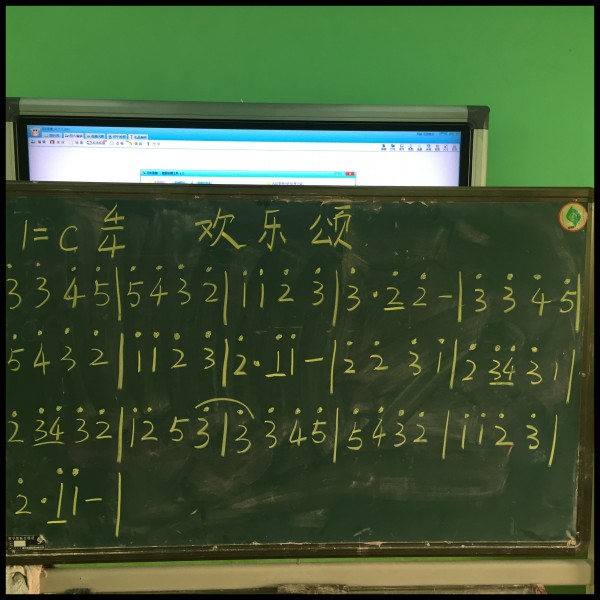 1=C 4/4 欢乐颂
3 3 4 5 | 5 4 3 2 | 1 1 2 3 | 3 · 2 2 - | 3 3 4 5 |
5 4 3 2 | 1 1 2 3 | 2 · 1 1 - | 2 2 3 1 | 2 34 3 1 |
2 34 3 2 | 1 2 5 3 | 3 3 4 5 | 5 4 3 2 | 1 1 2 3 |
2 · 1 1 - |